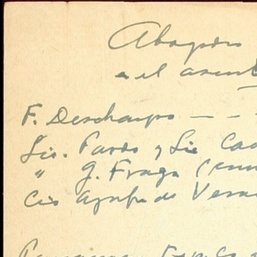 Abogados
en el asunt
F. Deschamps — — -
Lic. Pardo y Lic Cas
" G. Fraga (
Cía Azufre de Vera